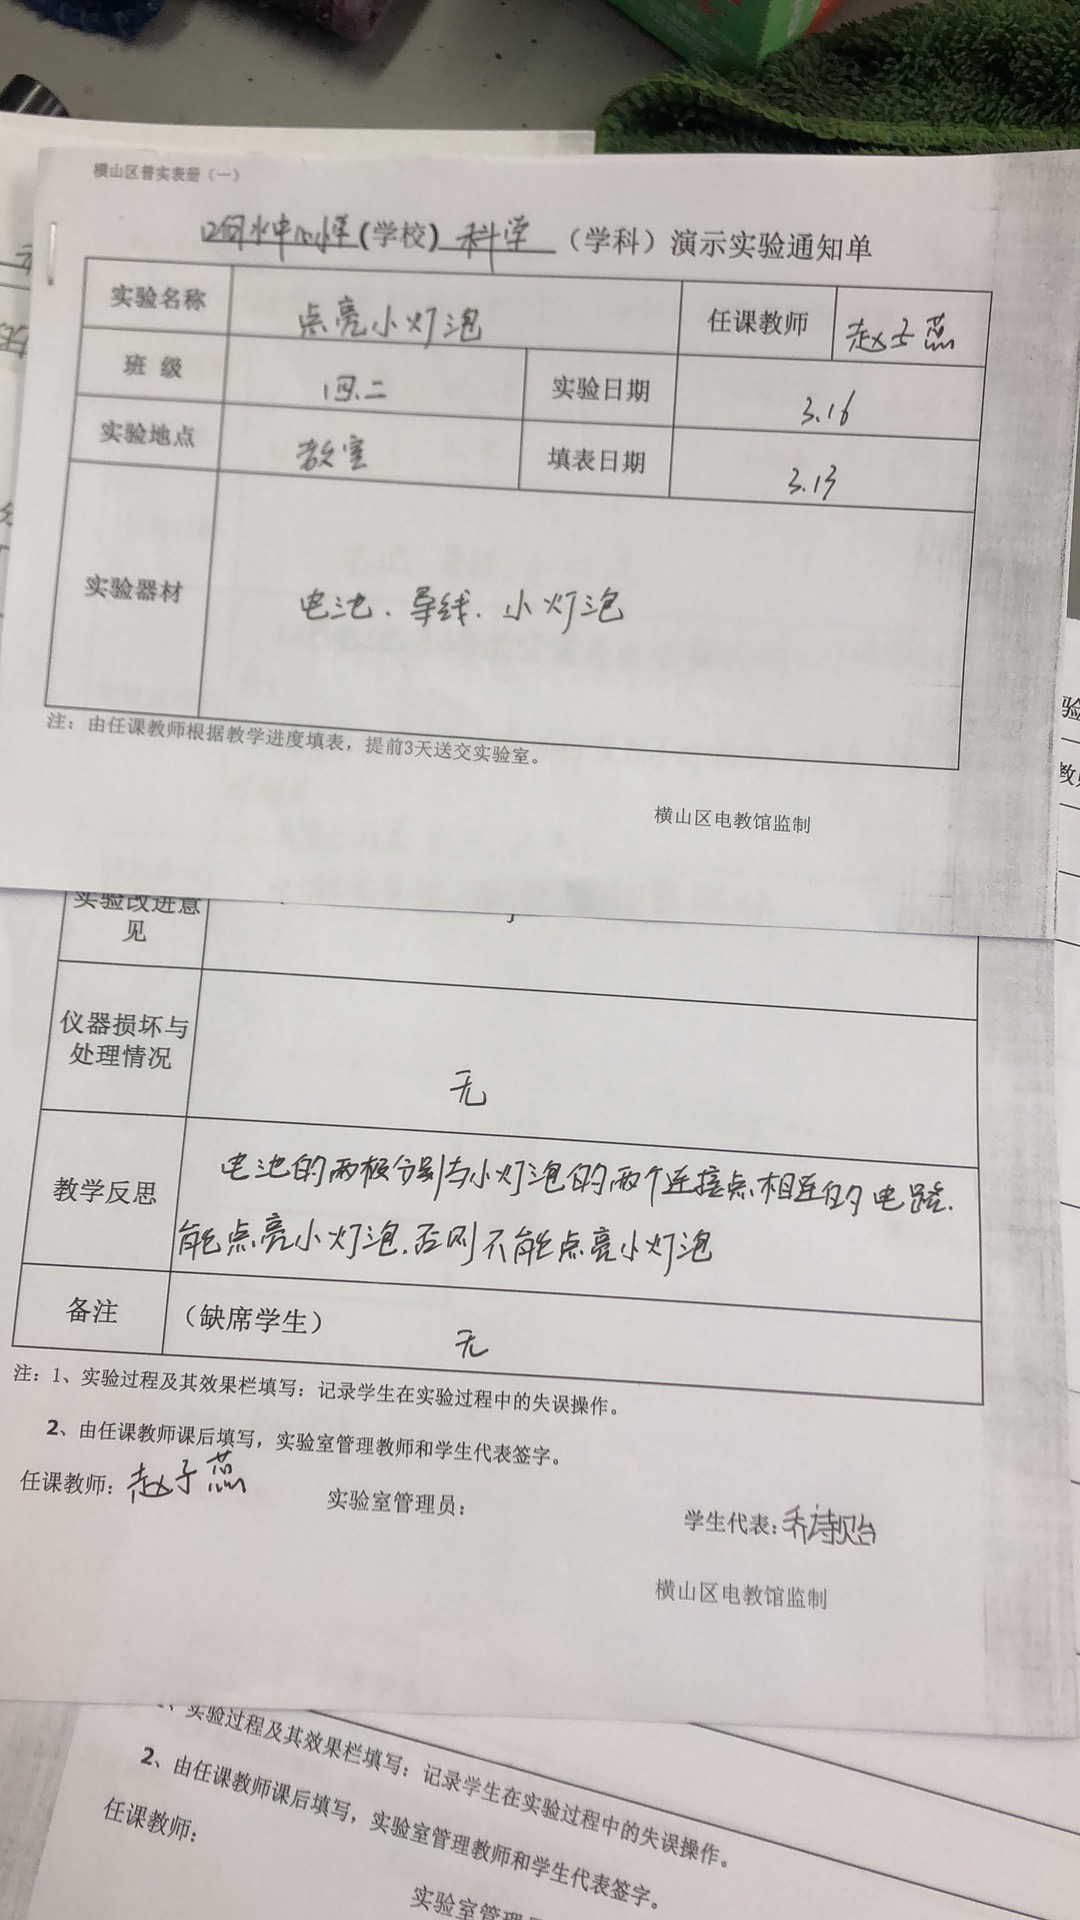 横山区普实表册（一）
响水中心小学（学校）科学（学科）演示实验通知单
实验名称 点亮小灯泡 任课教师 赵子蕊
班 级 四.二 实验日期 3.16
实验地点 教室 填表日期 3.13
实验器材 电池、导线、小灯泡
注：由任课教师根据教学进度填表，提前3天送交实验室。
横山区电教馆监制
实验改进意
见
仪器损坏与
处理情况 无
教学反思 电池的两极分别与小灯泡的两个连接点相连的电路.
能点亮小灯泡.否则不能点亮小灯泡
备注 （缺席学生） 无
注：1、实验过程及其效果栏填写：记录学生在实验过程中的失误操作。
2、由任课教师课后填写，实验室管理教师和学生代表签字。
任课教师：赵子蕊 实验室管理员： 学生代表：乔诗贻
横山区电教馆监制
、实验过程及其效果栏填写：记录学生在实验过程中的失误操作。
2、由任课教师课后填写，实验室管理教师和学生代表签字。
任课教师：
实验室管理